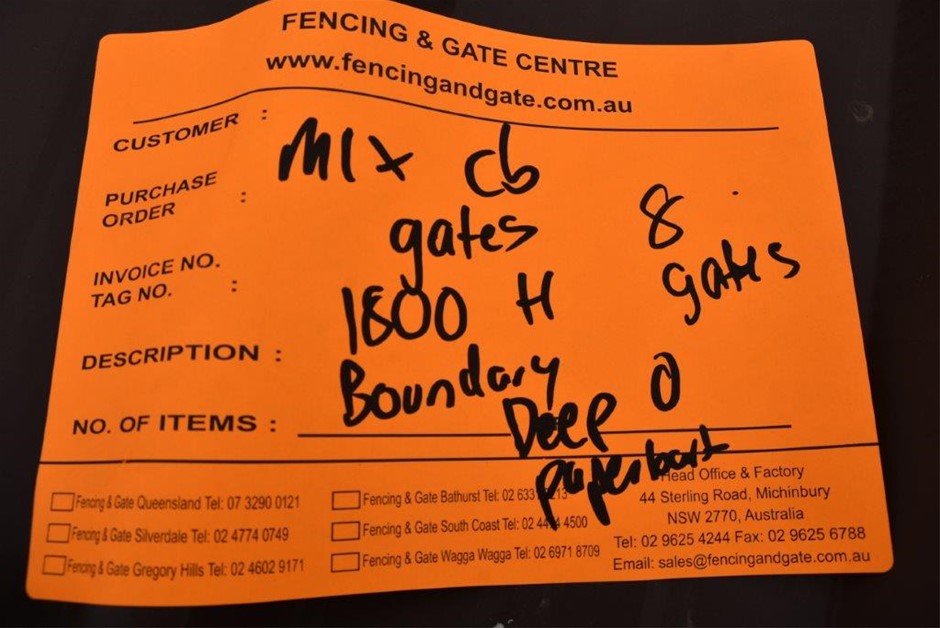 FENCING & GATE CENTRE
www.fencingandgate.com.au
CUSTOMER :
MIX cb
PURCHASE ORDER :
gates 8
INVOICE NO. TAG NO. :
1800 H gates
DESCRIPTION :
Boundary
NO. OF ITEMS :
Deep O
paperbark
Fencing & Gate Queensland Tel: 07 3290 0121
Fencing & Gate Silverdale Tel: 02 4774 0749
Fencing & Gate Gregory Hills Tel: 02 4602 9171
Fencing & Gate Bathurst Tel: 02
Fencing & Gate South Coast Tel: 02 4500
Fencing & Gate Wagga Wagga Tel: 02 6971 8709
Head Office & Factory
44 Sterling Road, Michinbury
NSW 2770, Australia
Tel: 02 9625 4244 Fax: 02 9625 6788
Email: sales@fencingandgate.com.au